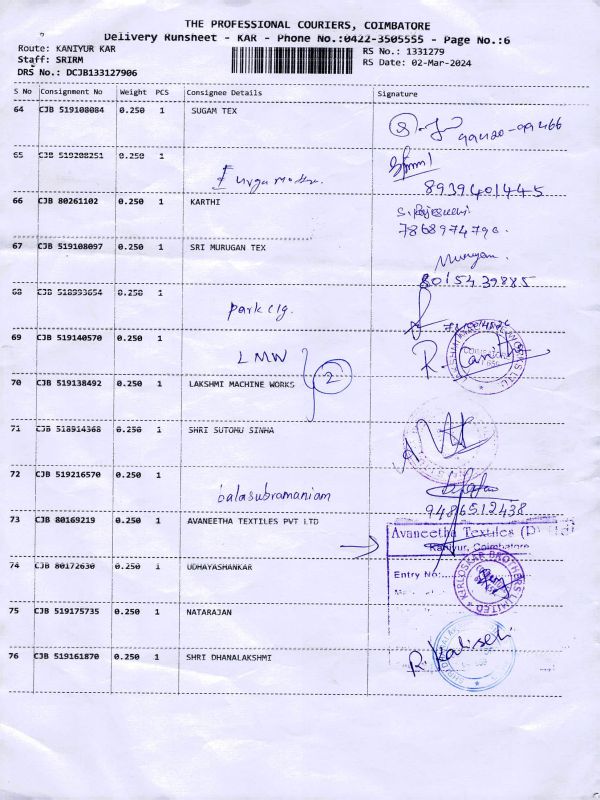 THE PROFESSIONAL COURIERS, COIMBATORE
Delivery Runsheet - KAR - Phone No.:0422-3505555 - Page No.:6
Route: KANIYUR KAR
RS No.: 1331279
Staff: SRIRM
RS Date: 02-Mar-2024
DRS No.: DCJB133127906
S No Consignment No Weight PCS Consignee Details Signature
64 CJB 519108084 0.250 1 SUGAM TEX
99420-99466
65 CJB 519208251 0.250 1
8939401445
66 CJB 80261102 0.250 1 KARTHI
S. Rajeswari
7868974790.
67 CJB 519108097 0.250 1 SRI MURUGAN TEX
Murugan.
8015439885
68 CJB 518993654 0.250 1
Park clg.
69 CJB 519140570 0.250 1
LMW
2
70 CJB 519138492 0.250 1 LAKSHMI MACHINE WORKS
71 CJB 518914368 0.250 1 SHRI SUTOMU SINHA
72 CJB 519216570 0.250 1
balasubramaniam
9486512438
73 CJB 80169219 0.250 1 AVANEETHA TEXTILES PVT LTD
Avaneetha Textiles (P)
Kaniyur, Coimbatore
74 CJB 80172630 0.250 1 UDHAYASHANKAR
Entry No:
KIRLOSKAR BROTHERS LIMITED
75 CJB 519175735 0.250 1 NATARAJAN
76 CJB 519161870 0.250 1 SHRI DHANALAKSHMI